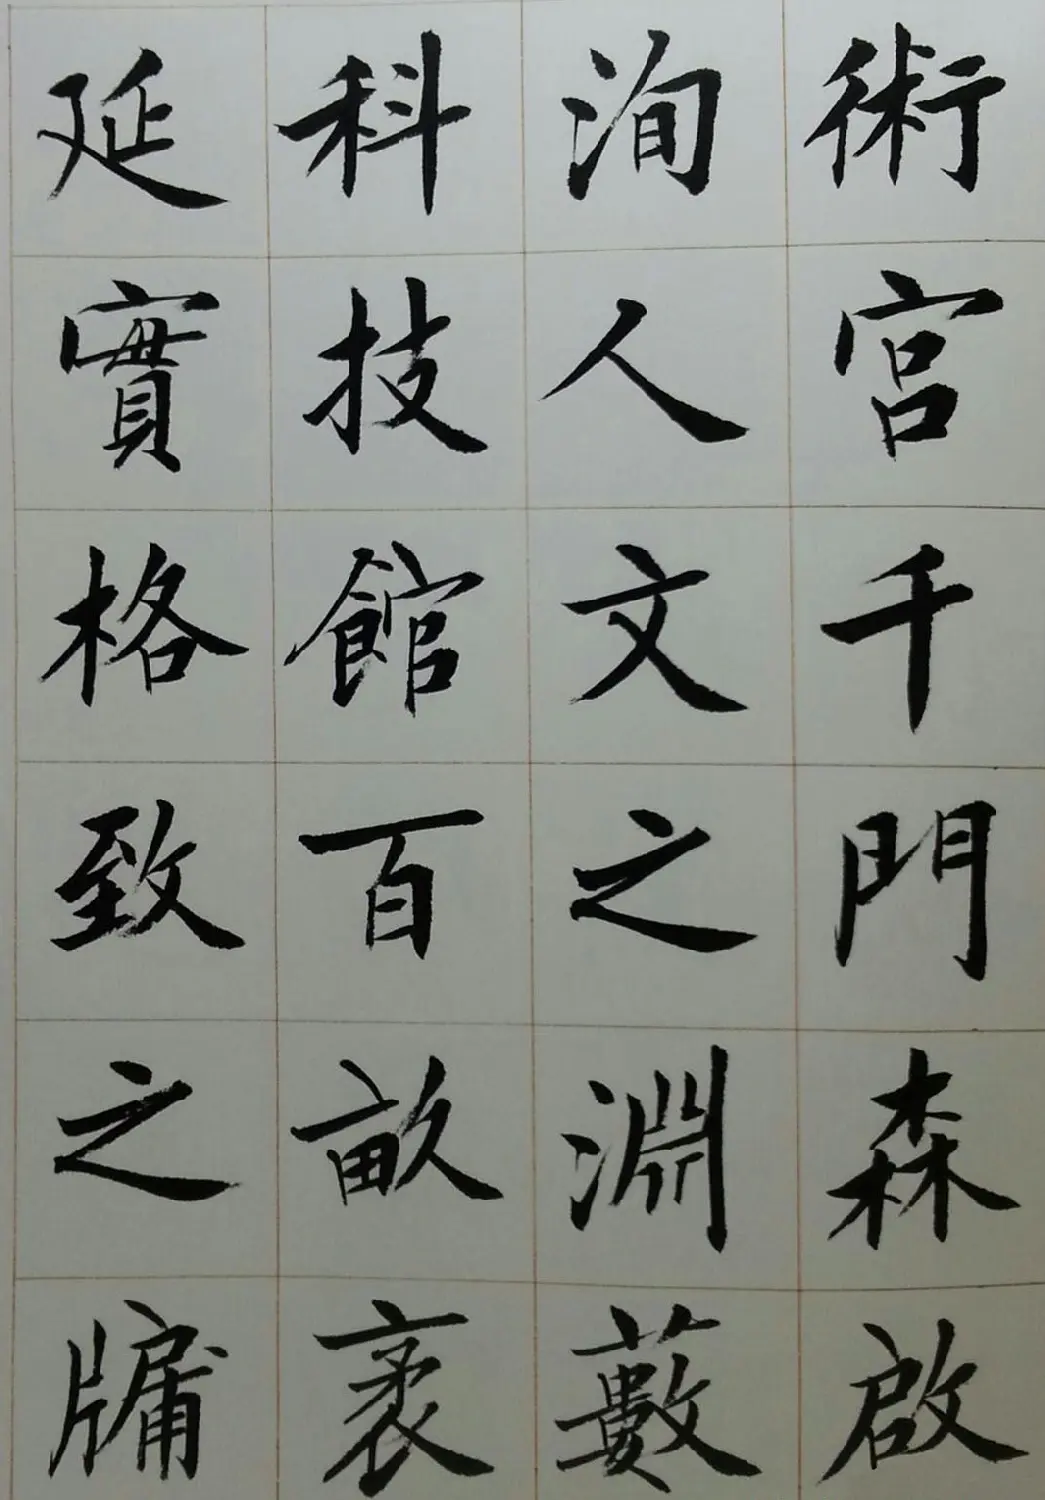 術宮千門森啟
洵人文之淵藪
科技館百畝袤
延實格致之牖